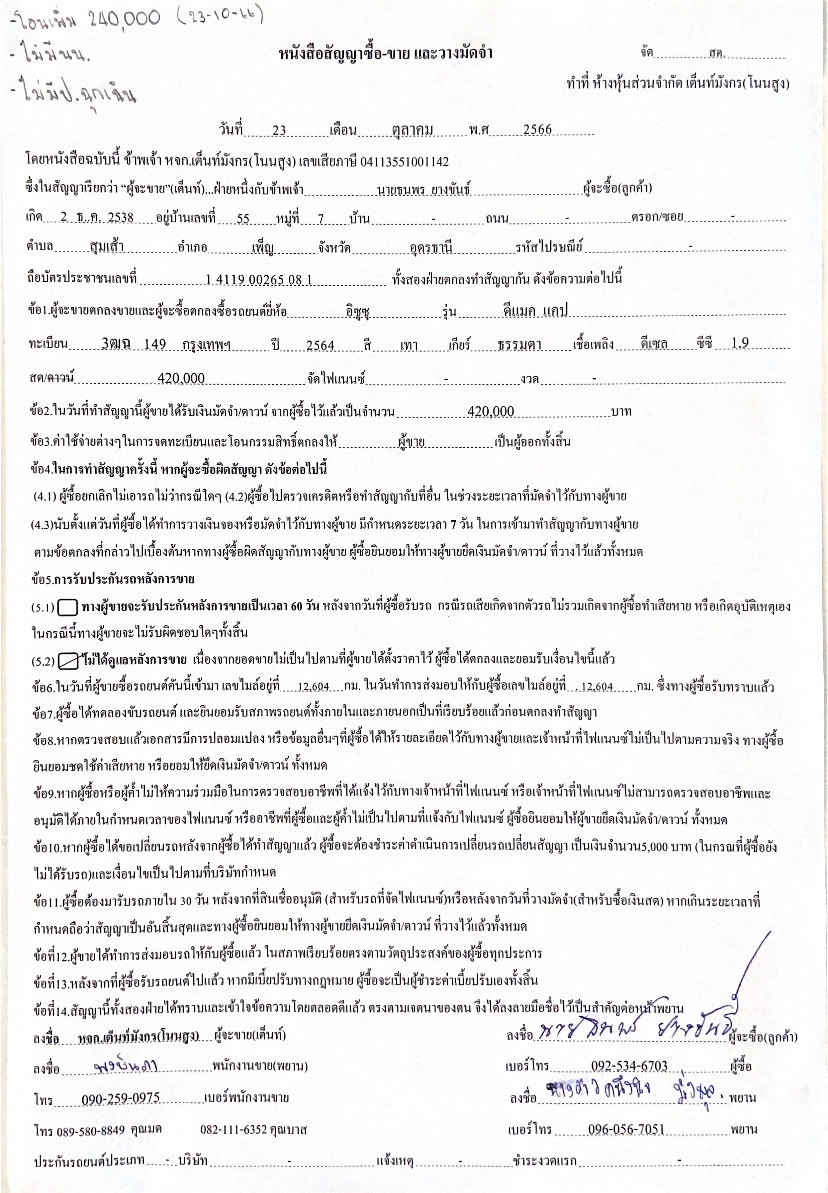 -โอนเพิ่ม 240,000 (23-10-66)
- ไม่มีนน.
- ไม่มีป.ฉุกเฉิน
หนังสือสัญญาซื้อ-ขาย และวางมัดจำ
จัด สด.
ทำที่ ห้างหุ้นส่วนจำกัด เต็นท์มังกร(โนนสูง)
วันที่ 23 เดือน ตุลาคม พ.ศ 2566
โดยหนังสือฉบับนี้ ข้าพเจ้า หจก.เต็นท์มังกร(โนนสูง) เลขเสียภาษี 04113551001142
ซึ่งในสัญญาเรียกว่า "ผู้จะขาย"(เต็นท์)...ฝ่ายหนึ่งกับข้าพเจ้า นายธนพร ยางขันธ์ ผู้จะซื้อ(ลูกค้า)
เกิด 2 ธ.ค. 2538 อยู่บ้านเลขที่ 55 หมู่ที่ 7 บ้าน - ถนน - ตรอก/ซอย -
ตำบล สุมเส้า อำเภอ เพ็ญ จังหวัด อุดรธานี รหัสไปรษณีย์ -
ถือบัตรประชาชนเลขที่ 1 4119 00265 08 1 ทั้งสองฝ่ายตกลงทำสัญญากัน ดังข้อความต่อไปนี้
ข้อ1.ผู้จะขายตกลงขายและผู้จะซื้อตกลงซื้อรถยนต์ยี่ห้อ อิซูซุ รุ่น ดีแมค แคป
ทะเบียน 3ฒฉ 149 กรุงเทพฯ ปี 2564 สี เทา เกียร์ ธรรมดา เชื้อเพลิง ดีเซล ซีซี 1.9
สด/ดาวน์ 420,000 จัดไฟแนนซ์ - งวด -
ข้อ2.ในวันที่ทำสัญญานี้ผู้ขายได้รับเงินมัดจำ/ดาวน์ จากผู้ซื้อไว้แล้วเป็นจำนวน 420,000 บาท
ข้อ3.ค่าใช้จ่ายต่างๆในการจดทะเบียนและโอนกรรมสิทธิ์ตกลงให้ ผู้ขาย เป็นผู้ออกทั้งสิ้น
ข้อ4.ในการทำสัญญาครั้งนี้ หากผู้จะซื้อผิดสัญญา ดังข้อต่อไปนี้
(4.1) ผู้ซื้อยกเลิกไม่เอารถไม่ว่ากรณีใดๆ (4.2)ผู้ซื้อไปตรวจเครดิตหรือทำสัญญากับที่อื่น ในช่วงระยะเวลาที่มัดจำไว้กับทางผู้ขาย
(4.3)นับตั้งแต่วันที่ผู้ซื้อได้ทำการวางเงินจองหรือมัดจำไว้กับทางผู้ขาย มีกำหนดระยะเวลา 7 วัน ในการเข้ามาทำสัญญากับทางผู้ขาย
ตามข้อตกลงที่กล่าวไปเบื้องต้นหากทางผู้ซื้อผิดสัญญากับทางผู้ขาย ผู้ซื้อยินยอมให้ทางผู้ขายยึดเงินมัดจำ/ดาวน์ ที่วางไว้แล้วทั้งหมด
ข้อ5.การรับประกันรถหลังการขาย
(5.1) ทางผู้ขายจะรับประกันหลังการขายเป็นเวลา 60 วัน หลังจากวันที่ผู้ซื้อรับรถ กรณีรถเสียเกิดจากตัวรถไม่รวมเกิดจากผู้ซื้อทำเสียหาย หรือเกิดอุบัติเหตุเอง
ในกรณีนี้ทางผู้ขายจะไม่รับผิดชอบใดๆทั้งสิ้น
(5.2) ไม่ได้ดูแลหลังการขาย เนื่องจากยอดขายไม่เป็นไปตามที่ผู้ขายได้ตั้งราคาไว้ ผู้ซื้อได้ตกลงและยอมรับเงื่อนไขนี้แล้ว
ข้อ6.ในวันที่ผู้ขายซื้อรถยนต์คันนี้เข้ามา เลขไมล์อยู่ที่ 12,604 กม. ในวันทำการส่งมอบให้กับผู้ซื้อเลขไมล์อยู่ที่ 12,604 กม. ซึ่งทางผู้ซื้อรับทราบแล้ว
ข้อ7.ผู้ซื้อได้ทดลองขับรถยนต์ และยินยอมรับสภาพรถยนต์ทั้งภายในและภายนอกเป็นที่เรียบร้อยแล้วก่อนตกลงทำสัญญา
ข้อ8.หากตรวจสอบแล้วเอกสารมีการปลอมแปลง หรือข้อมูลอื่นๆที่ผู้ซื้อได้ให้รายละเอียดไว้กับทางผู้ขายและเจ้าหน้าที่ไฟแนนซ์ไม่เป็นไปตามความจริง ทางผู้ซื้อ
ยินยอมชดใช้ค่าเสียหาย หรือยอมให้ยึดเงินมัดจำ/ดาวน์ ทั้งหมด
ข้อ9.หากผู้ซื้อหรือผู้ค้ำไม่ให้ความร่วมมือในการตรวจสอบอาชีพที่ได้แจ้งไว้กับทางเจ้าหน้าที่ไฟแนนซ์ หรือเจ้าหน้าที่ไฟแนนซ์ไม่สามารถตรวจสอบอาชีพและ
อนุมัติได้ภายในกำหนดเวลาของไฟแนนซ์ หรืออาชีพที่ผู้ซื้อและผู้ค้ำไม่เป็นไปตามที่แจ้งกับไฟแนนซ์ ผู้ซื้อยินยอมให้ผู้ขายยึดเงินมัดจำ/ดาวน์ ทั้งหมด
ข้อ10.หากผู้ซื้อได้ขอเปลี่ยนรถหลังจากผู้ซื้อได้ทำสัญญาแล้ว ผู้ซื้อจะต้องชำระค่าดำเนินการเปลี่ยนรถเปลี่ยนสัญญา เป็นเงินจำนวน5,000 บาท (ในกรณที่ผู้ซื้อยัง
ไม่ได้รับรถ)และเงื่อนไขเป็นไปตามที่บริษัทกำหนด
ข้อ11.ผู้ซื้อต้องมารับรถภายใน 30 วัน หลังจากที่สินเชื่ออนุมัติ (สำหรับรถที่จัดไฟแนนซ์)หรือหลังจากวันที่วางมัดจำ(สำหรับซื้อเงินสด) หากเกินระยะเวลาที่
กำหนดถือว่าสัญญาเป็นอันสิ้นสุดและทางผู้ซื้อยินยอมให้ทางผู้ขายยึดเงินมัดจำ/ดาวน์ ที่วางไว้แล้วทั้งหมด
ข้อที่12.ผู้ขายได้ทำการส่งมอบรถให้กับผู้ซื้อแล้ว ในสภาพเรียบร้อยตรงตามวัตถุประสงค์ของผู้ซื้อทุกประการ
ข้อที่13.หลังจากที่ผู้ซื้อรับรถยนต์ไปแล้ว หากมีเบี้ยปรับทางกฎหมาย ผู้ซื้อจะเป็นผู้ชำระค่าเบี้ยปรับเองทั้งสิ้น
ข้อที่14.สัญญานี้ทั้งสองฝ่ายได้ทราบและเข้าใจข้อความโดยตลอดดีแล้ว ตรงตามเจตนาของตน จึงได้ลงลายมือชื่อไว้เป็นสำคัญต่อหน้าพยาน
ลงชื่อ หจก.เต็นท์มังกร(โนนสูง) ผู้จะขาย(เต็นท์) ลงชื่อ นายธนพร ยางขันธ์ ผู้จะซื้อ(ลูกค้า)
ลงชื่อ พนักงานขาย(พยาน) เบอร์โทร 092-534-6703 ผู้ซื้อ
โทร 090-259-0975 เบอร์พนักงานขาย ลงชื่อ พยาน
โทร 089-580-8849 คุณมด 082-111-6352 คุณบาส เบอร์โทร 096-056-7051 พยาน
ประกันรถยนต์ประเภท - บริษัท - แจ้งเหตุ - ชำระงวดแรก -